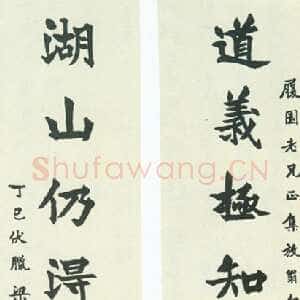 履園老兄正集放翁
道義極知
湖山仍得
丁巳伏臘梁
Shufawang.CN